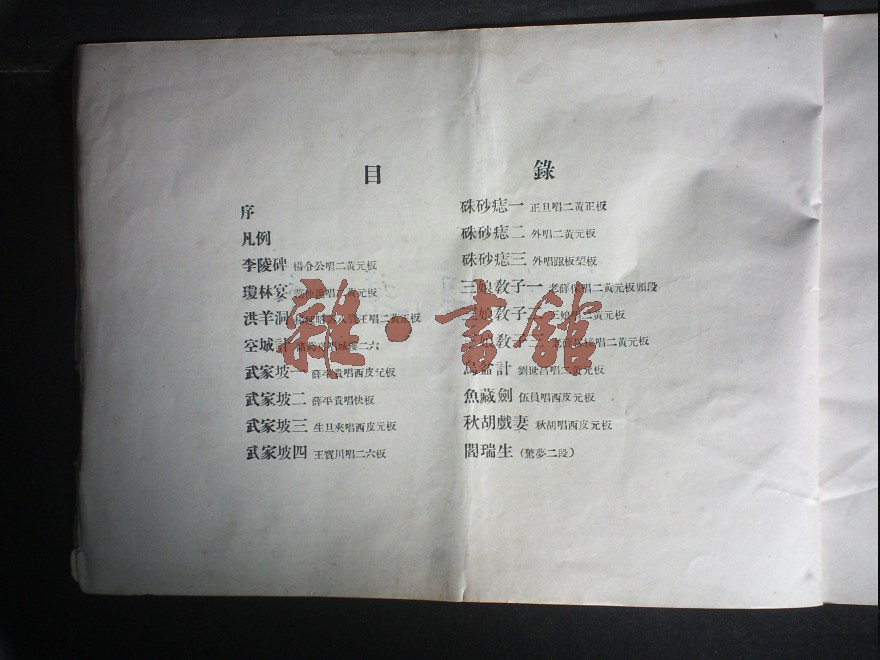 目錄
序
凡例
李陵碑 楊令公唱二黃元板
瓊林宴 唱二黃元板
洪羊洞 唱二黃正板
空城計 二六
武家坡一 薛平貴唱西皮元板
武家坡二 薛平貴唱快板
武家坡三 生旦夾唱西皮元板
武家坡四 王寶川唱二六板
硃砂痣一 正旦唱二黃正板
硃砂痣二 外唱二黃元板
硃砂痣三 外唱跟板榘板
三娘敎子一 老薛保唱二黃元板頭段
娘敎子 三娘唱二黃元板
娘敎子三 唱二黃元板
烏盆計 劉世昌唱二黃元板
魚藏劍 伍員唱西皮元板
秋胡戲妻 秋胡唱西皮元板
閻瑞生 (驚夢二段)
雜·書館